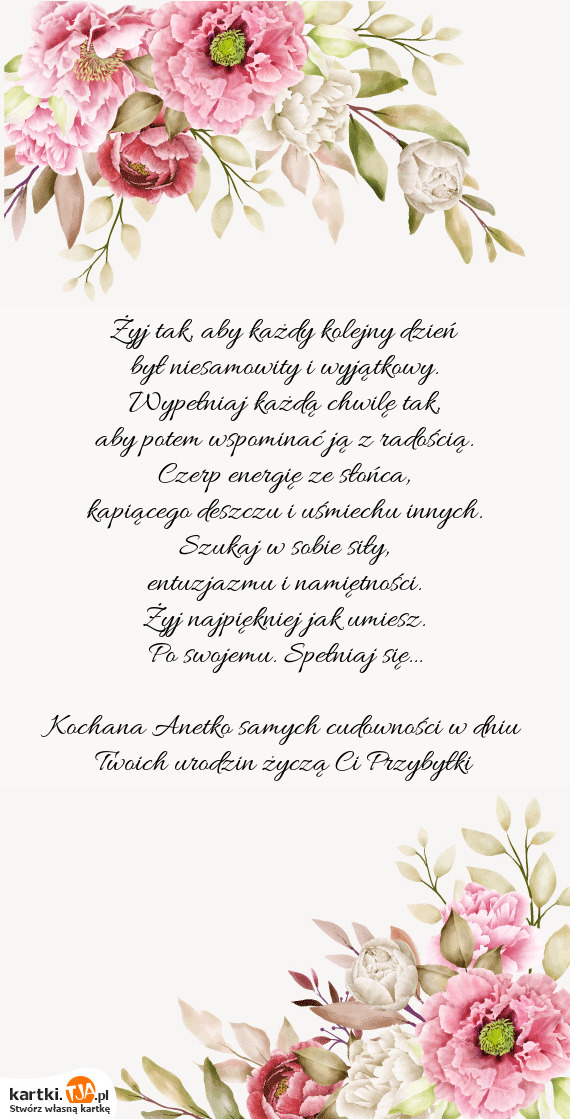 Żyj tak, aby każdy kolejny dzień
był niesamowity i wyjątkowy.
Wypełniaj każdą chwilę tak,
aby potem wspominać ją z radością.
Czerp energię ze słońca,
kapiącego deszczu i uśmiechu innych.
Szukaj w sobie siły,
entuzjazmu i namiętności.
Żyj najpiękniej jak umiesz.
Po swojemu. Spełniaj się...
Kochana Anetko samych cudowności w dniu
Twoich urodzin życzą Ci Przybyłki
kartki.TJA.pl
Stwórz własną kartkę